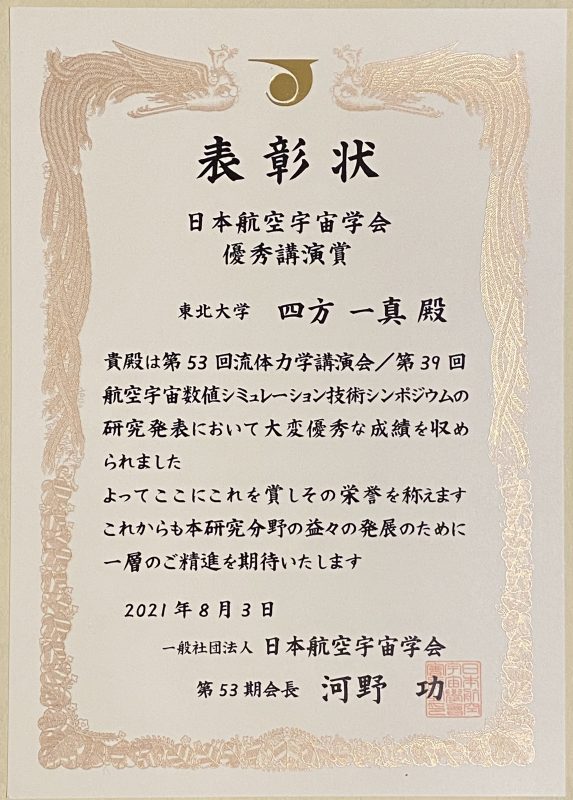 表彰状
日本航空宇宙学会
優秀講演賞
東北大学 四方 一真 殿
貴殿は第53回流体力学講演会/第39回
航空宇宙数値シミュレーション技術シンポジウムの
研究発表において大変優秀な成績を収め
られました
よってここにこれを賞しその栄誉を称えます
これからも本研究分野の益々の発展のために
一層のご精進を期待いたします
2021年8月3日
一般社団法人 日本航空宇宙学会
第53期会長 河野 功